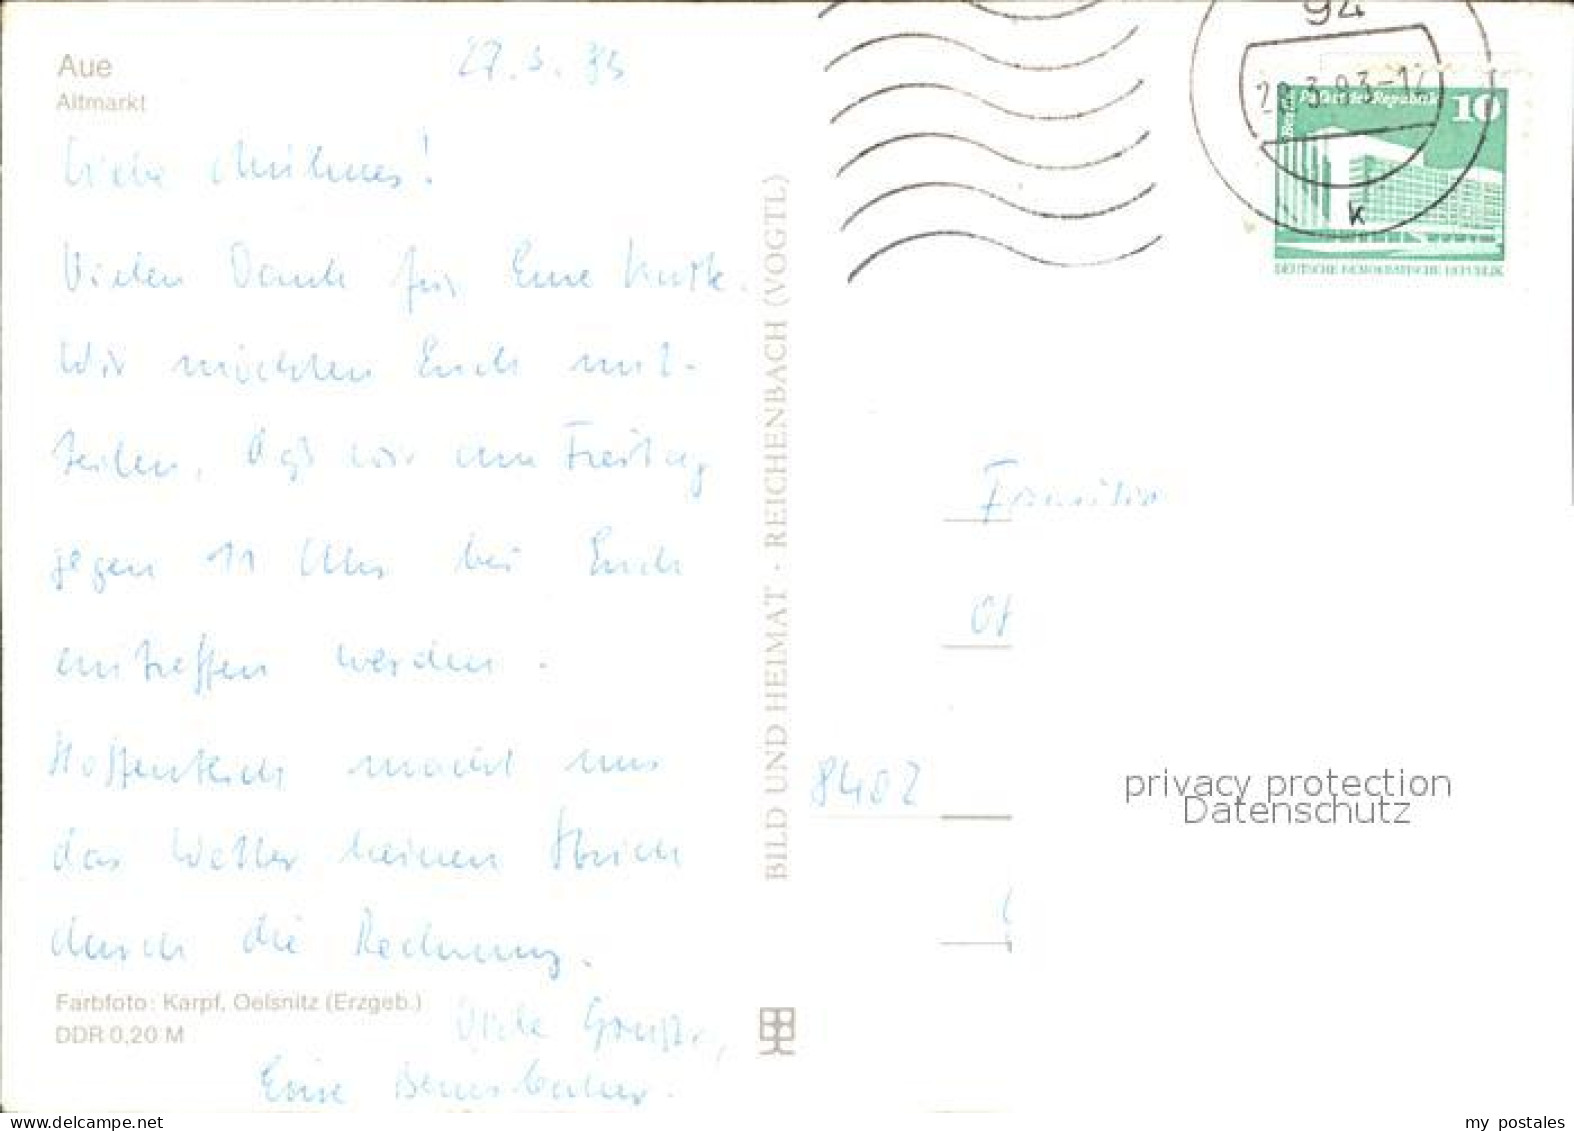 Aue
Altmarkt
27.3.
Liebe
Vielen Dank für Eure Karte.
Wir möchten Euch mit-
teilen, daß wir am Freitag
gegen 11 Uhr bei Euch
eintreffen werden.
Hoffentlich macht uns
das Wetter keinen Strich
durch die Rechnung.
Viele Grüße,
Eure
Farbfoto: Karpf, Oelsnitz (Erzgeb.)
DDR 0,20 M
BILD UND HEIMAT · REICHENBACH (VOGTL)
94
k
Berlin Palast der Republik
10
DEUTSCHE DEMOKRATISCHE REPUBLIK
Familie
8402
privacy protection
Datenschutz
www.delcampe.net
my_postales